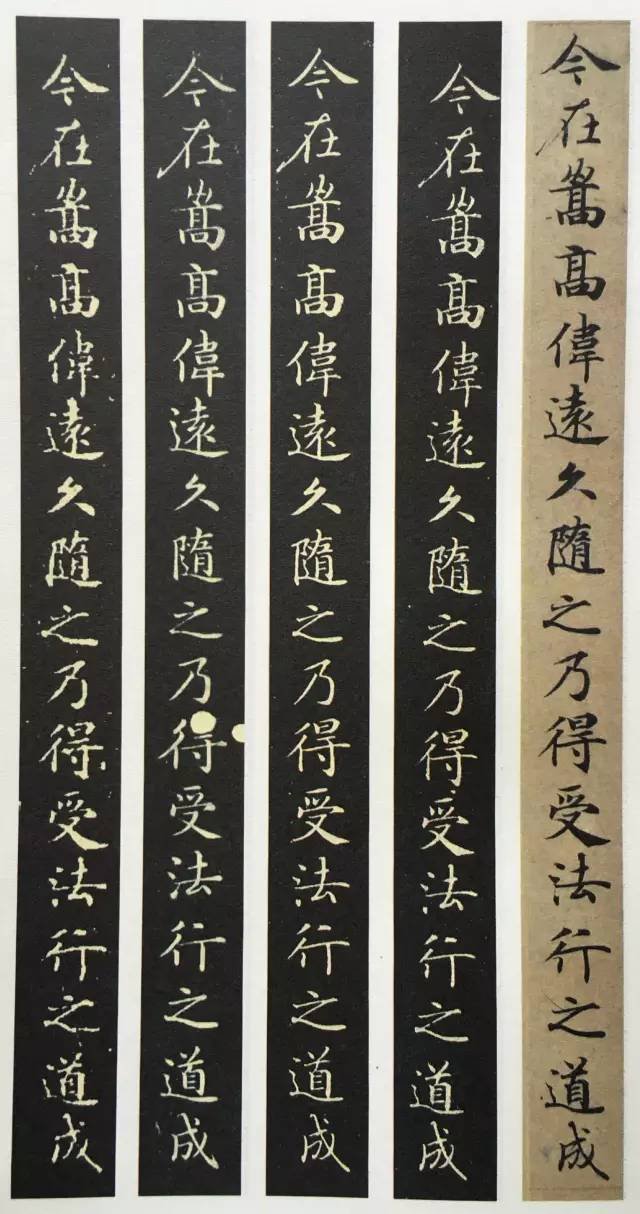 今在嵩高偉遠久隨之乃得受法行之道成
今在嵩高偉遠久隨之乃得受法行之道成
今在嵩高偉遠久隨之乃得受法行之道成
今在嵩高偉遠久隨之乃得受法行之道成
今在嵩高偉遠久隨之乃得受法行之道成